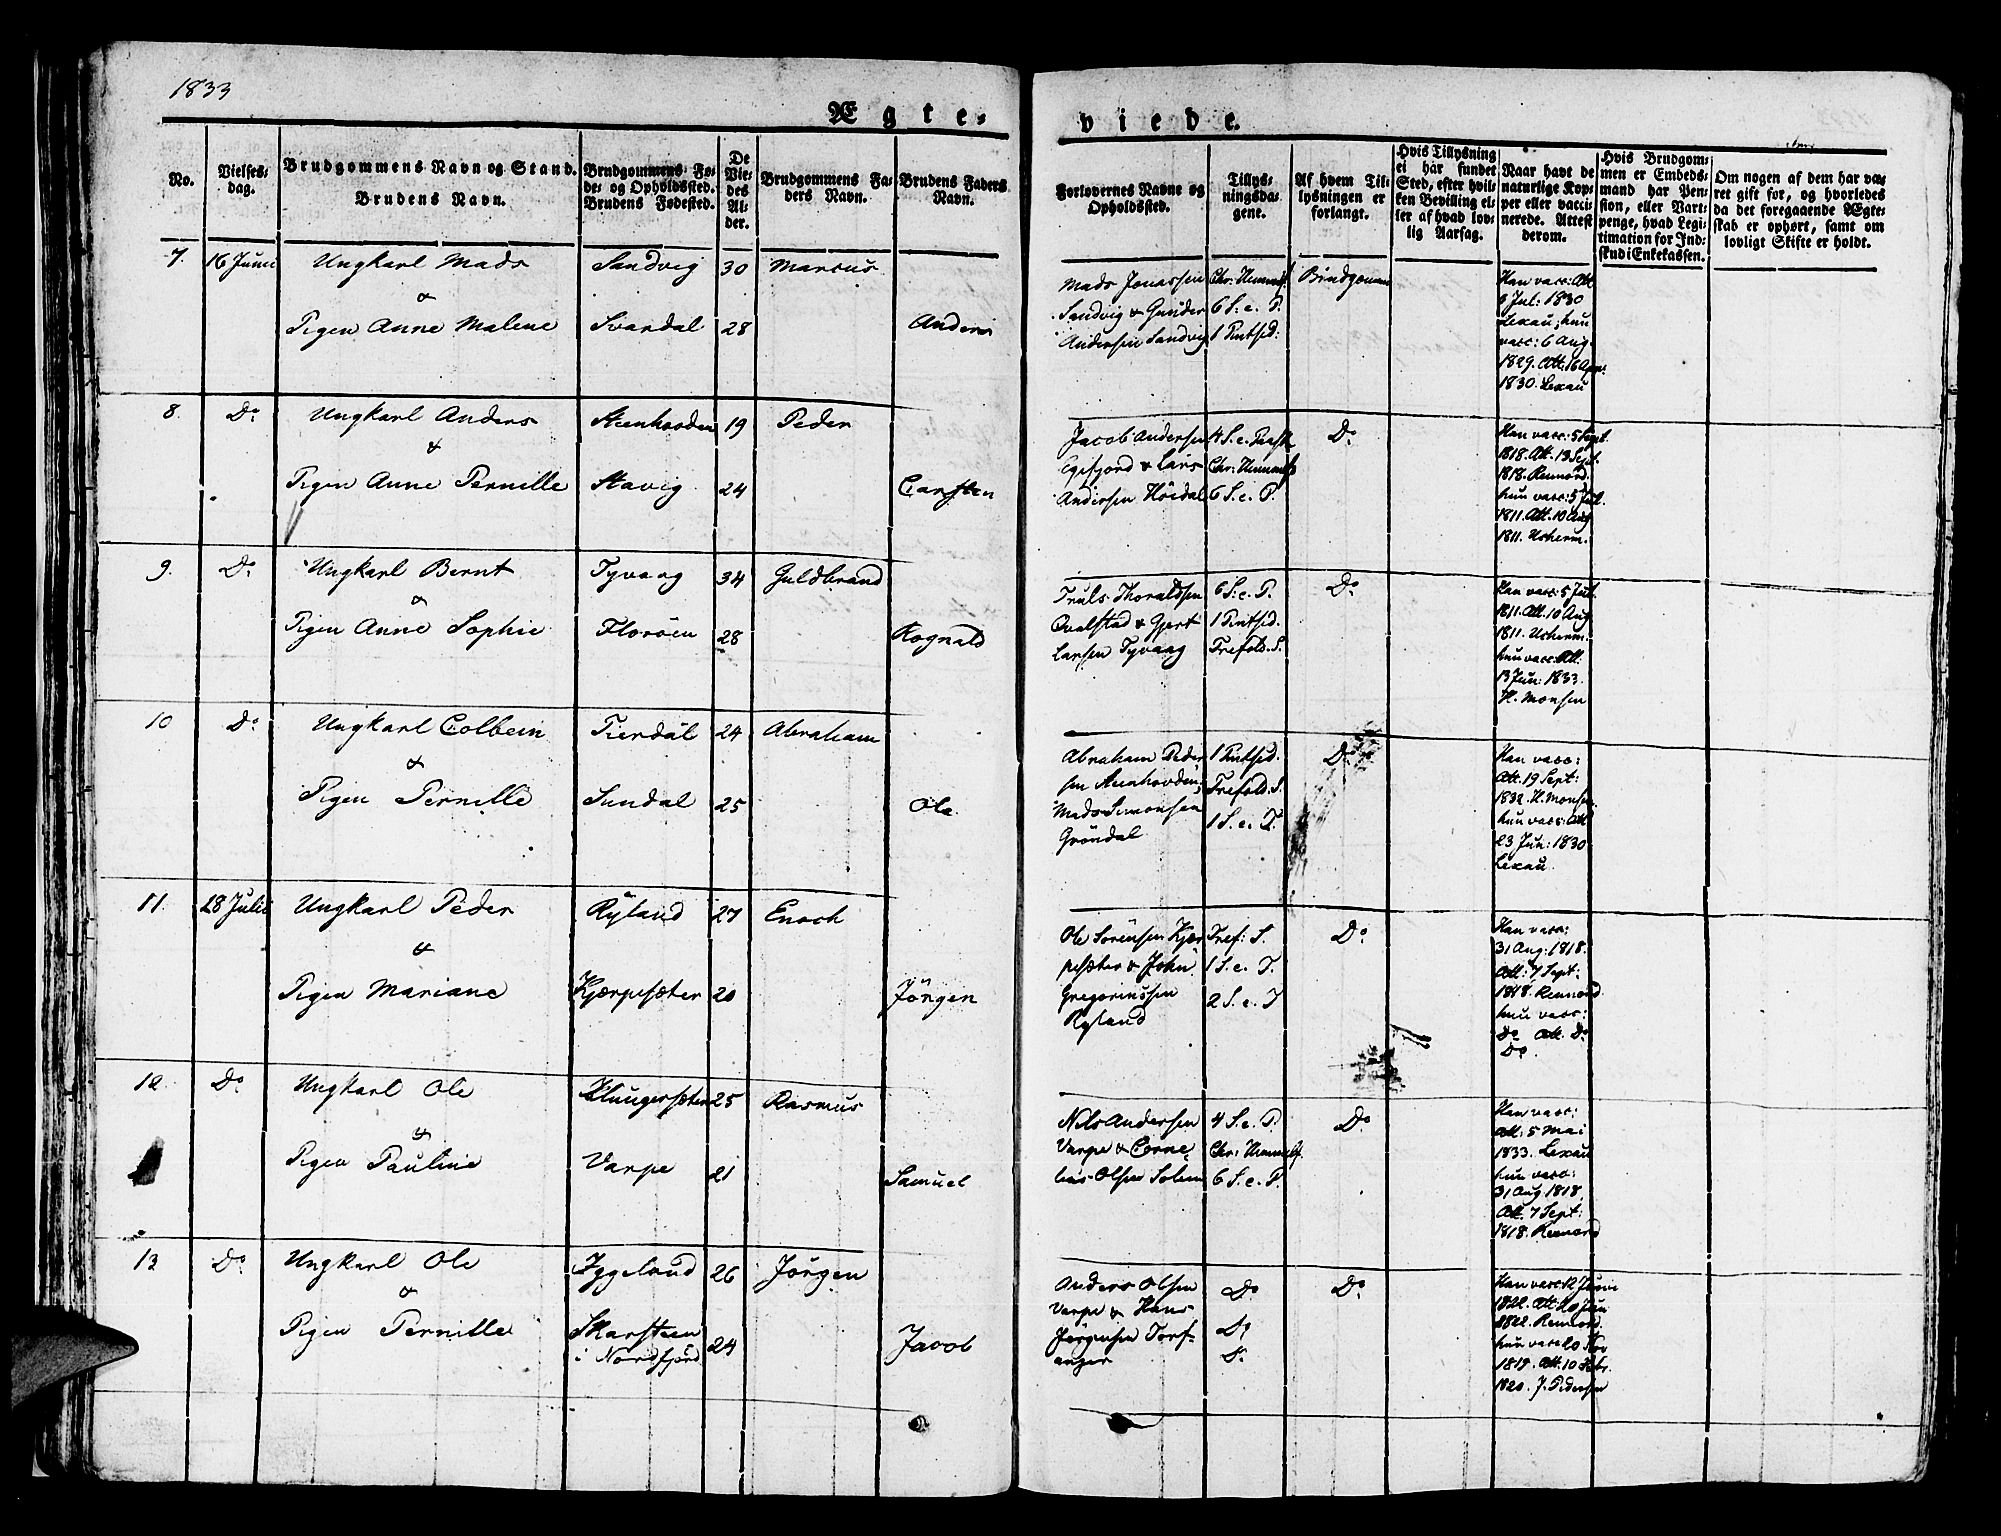 1833
Ægte-
No.
Vielses-
dag.
Brudgommens Navn og Stand.
Brudens Navn.
Brudgommens Fø-
de- og Opholdssted.
Brudens Fødested.
De
Vie-
des
Al-
der.
Brudgommens Fa-
ders Navn.
Brudens Faders
Navn.
7. 16 Junii Ungkarl Mads Sandvig 30 Marcus
&
Pigen Anne Malene Svardal 28 Anders
8. Do Ungkarl Anders Steenhovden 19 Peder
&
Pigen Anne Pernille Stavig 24 Carsten
9. Do Ungkarl Bernt Tyvaag 34 Guldbrand
&
Pigen Anne Sophie Florøen 28 Rognald
10 Do Ungkarl Colbein Tierdal 24 Abraham
&
Pigen Pernille Sundal 25 Ole
11. 28 Julii Ungkarl Peder Ryland 27 Enoch
&
Pigen Mariane Kjærpesæter 20 Jörgen
12. Do Ungkarl Ole Klungersæter 25 Rasmus
&
Pigen Pauline Varpe 21 Samuel
13 Do Ungkarl Ole Yggelund 26 Jörgen
&
Pigen Pernille Skarsteen
i Nordfjord 24 Jacob
viede.
Forlovernes Navne og
Opholdssted.
Tillys-
ningsda-
gene.
Af hvem Til-
lysningen er
forlangt.
Hvis Tillysning
ei har fundet
Sted, efter hvil-
ken Bevilling el-
ler af hvad lov-
lig Aarsag.
Naar havt de
naturlige Kop-
per eller vacci-
nerede. Attest
derom.
Hvis Brudgom-
men er Embeds-
mand har Pen-
sion, eller Vart-
penge, hvad Legi-
timation for Ind-
skud i Enkekassen.
Om nogen af dem har væ-
ret gift før, og hvorledes
da det foregaaende Ægte-
skab er ophørt, samt om
lovligt Skifte er holdt.
Mads Jonassen Chr: Himmelf. Brudgommen Han vacc: Att
Sandvig & Gunder 6 S. e. P. Jul: 1830
Andersen Sandvig 1 Pintsed: Lexau; hun
vacc: 6 Aug.
1829. Att. 16 Apr:
1830. Lexau
Jacob Andersen 4 S. e. Paask Do Han vacc: 5 Sept.
Egefjord & Lars Chr: Himmelf 1818. Att. 13 Sept.
Andersen Höidal 6 S. e. P. 1818. Rennord.
hun vacc: 5 Jul.
1811. Att. 10 Aug
1811. Ucherm.
Truls Thoraldsen 6 S. e. P. Do Han vacc: 5 Jul.
Qvalstad & Gjert 1 Pintsed. 1811. Att. 10 Aug
Larsen Tyvaag Trefold. S. 1811. Ucherm.
hun vacc: Att.
13 Jun: 1833.
H. Monsen
Abraham Peder 1 Pintsed. Do Han vacc:
sen Steenhovden; Trefold. S. Att. 19 Sept:
Mads Simonsen 1 S. e. T. 1832. H. Monsen.
Gröndal hun vacc: Att
23 Jun: 1830
Lexau.
Ole Sörensen Kjær Tref: S. Do Han vacc:
pesæter & John 1 S. e. T. 31 Aug: 1818.
Gregoriussen 2 S. e. T Att: 7 Sept:
Ryland 1818. Rennord.
hun vacc:
Do Att. Do
Do
Nils Andersen 4 S. e. P. Do Han vacc:
Varpe & Corne Chr: Himmelf. Att: 5 Mai
lius Olsen Solem 6 S. e. P. 1833. Lexau
hun vacc:
31 Aug 1818.
Att. 7 Sept:
1818. Rennord
Anders Olsen Do Do Han vacc: 12 Junii
Varpe & Hans Do 1822. Att. 20 Jun
Jörgensen Torf- Do 1822. Rennord.
anger hun vacc: 20 Nov
1819. Att. 10 Febr.
1820. J. Pedersen